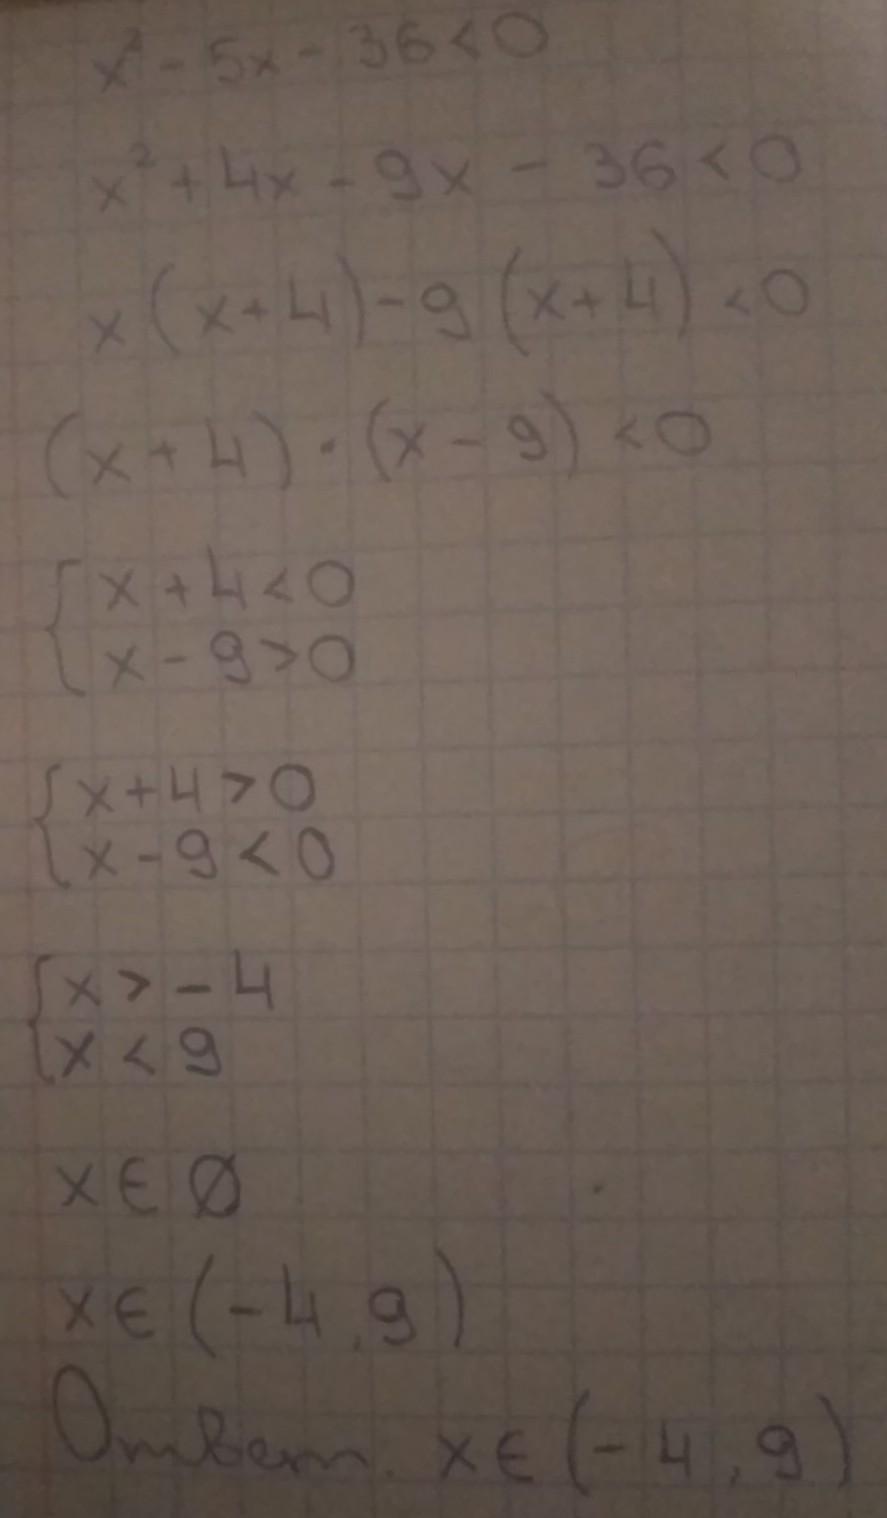 x² - 5x - 36 < 0
x² + 4x - 9x - 36 < 0
x(x+4) - 9(x+4) < 0
(x+4)·(x-9) < 0
{ x + 4 < 0
x - 9 > 0
{ x + 4 > 0
x - 9 < 0
{ x > -4
x < 9
x ∈ Ø
x ∈ (-4, 9)
Ответ. x ∈ (-4, 9)